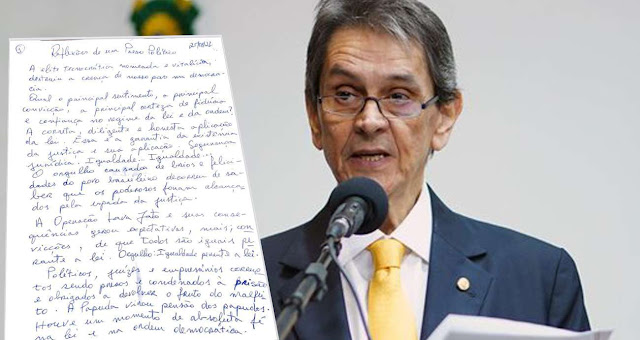 Reflexões de um Preso Político
A elite tecnocrática nomeada e vitalícia,
destruiu a crença do nosso povo na democra-
cia.
Qual o principal sentimento, a principal
convicção, a principal certeza de
e confiança no regime da lei e da ordem?
A correta, diligente e honesta aplicação
da lei. Essa é a garantia da existência
da justiça e sua aplicação. Segurança
jurídica. Igualdade. Igualdade.
O orgulho causador de e felici-
dades do povo brasileiro decorreu de sa-
ber que os poderosos foram alcança-
dos pela espada da justiça.
A Operação Lava Jato e suas conse-
quências, gerou expectativas, mais, con-
vicções, de que todos são iguais pe-
rante a lei. Orgulho: Igualdade perante a lei.
Políticos, juízes e empresários
sendo presos e condenados à prisão
e obrigados a devolver o fruto do malfei-
to. A Papuda virou pensão dos papudos.
Houve um momento de absoluta fé
na lei e na ordem democrática.